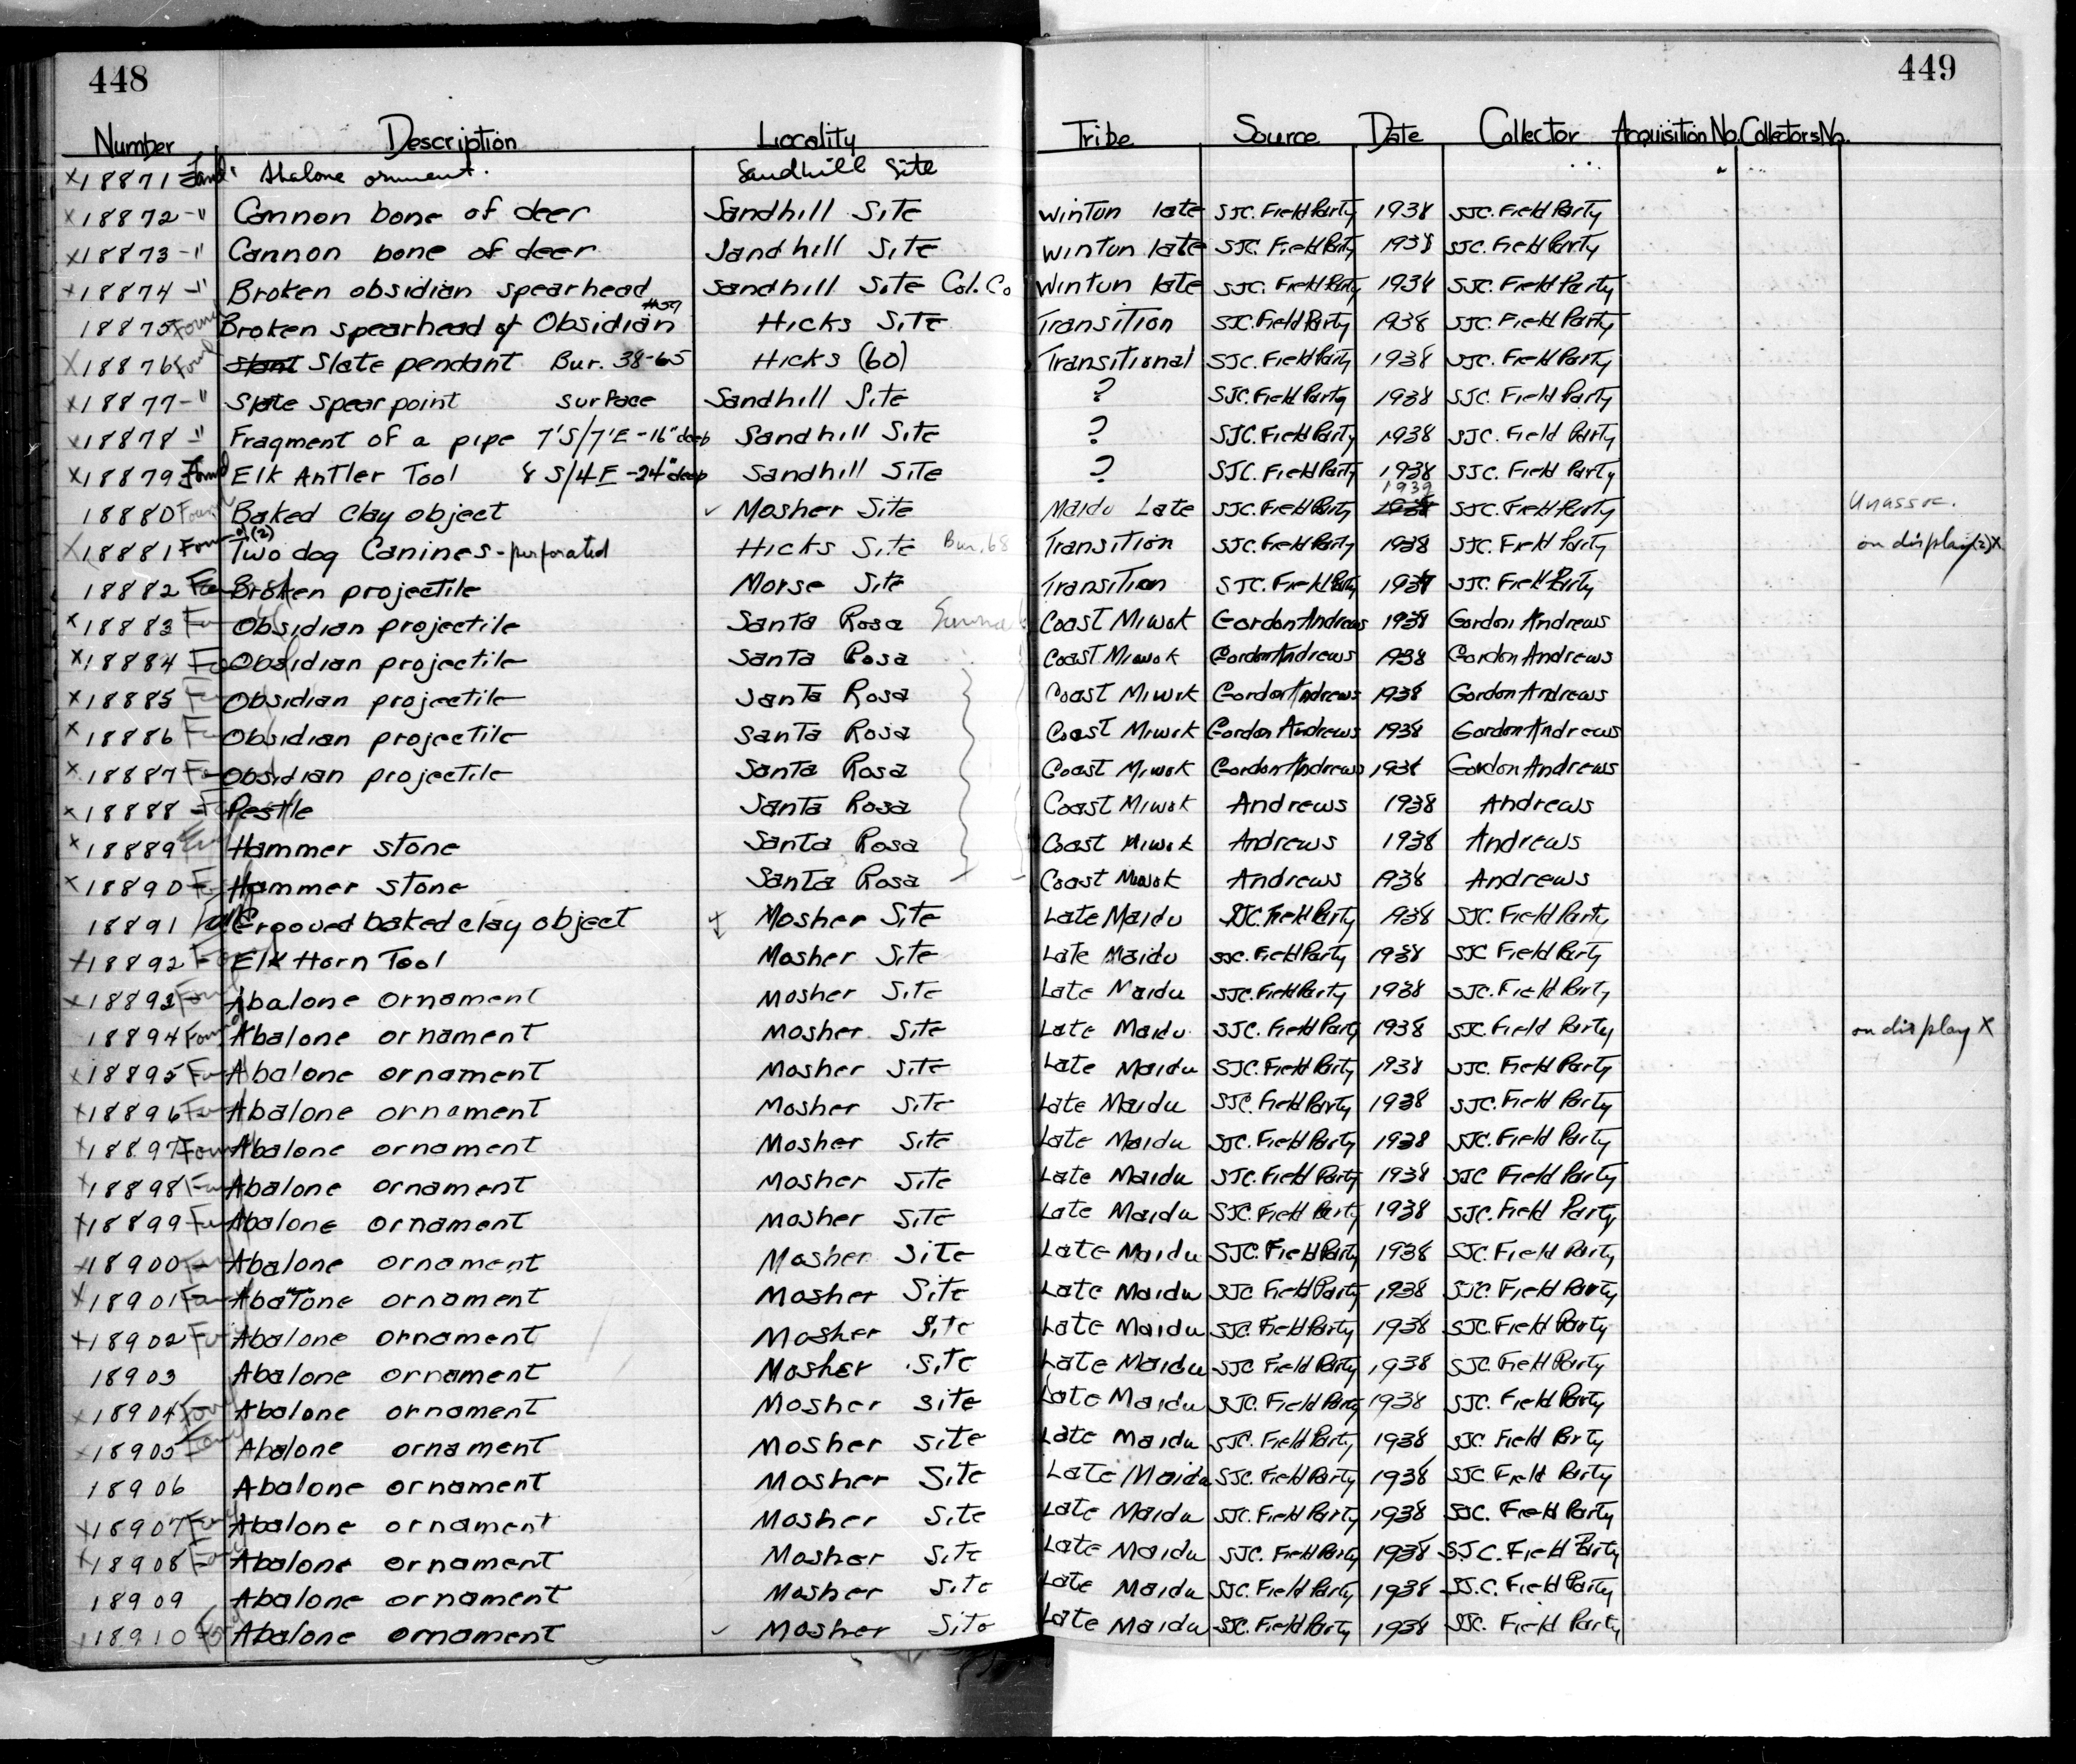 448
449
Number Description Locality Tribe Source Date Collector Acquisition No. Collectors No.
x18871 Found Abalone ornament. Sandhill Site
x18872 -" Cannon bone of deer Sandhill Site Wintun late SJC. Field Party 1938 SJC. Field Party
x18873 -" Cannon bone of deer Sandhill Site Wintun late SJC. Field Party 1938 SJC. Field Party
x18874 -" Broken obsidian spearhead Sandhill Site Col. Co Wintun late SJC. Field Party 1938 SJC. Field Party
18875 Found Broken spearhead of Obsidian #59 Hicks Site Transition SJC. Field Party 1938 SJC. Field Party
x18876 Found Slate pendant Bur. 38-65 Hicks (60) Transitional SJC. Field Party 1938 SJC. Field Party
x18877 -" Slate spear point surface Sandhill Site ? SJC. Field Party 1938 SJC. Field Party
x18878 -" Fragment of a pipe 7'S/7'E -16" deep Sandhill Site ? SJC. Field Party 1938 SJC. Field Party
x18879 Found Elk Antler Tool 8 S/4 E -24" deep Sandhill Site ? SJC. Field Party 1938 SJC. Field Party
18880 Found Baked Clay object ✓ Mosher Site Maidu Late SJC. Field Party 1939 1938 SJC. Field Party Unassoc.
x18881 Found (2) Two dog Canines - perforated Hicks Site Bur. 68 Transition SJC. Field Party 1938 SJC. Field Party on display (2) x
18882 Broken projectile Morse Site Transition SJC. Field Party 1937 SJC. Field Party
x18883 Obsidian projectile Santa Rosa Coast Miwok Gordon Andrews 1938 Gordon Andrews
x18884 Obsidian projectile Santa Rosa Coast Miwok Gordon Andrews 1938 Gordon Andrews
x18885 Obsidian projectile Santa Rosa Coast Miwok Gordon Andrews 1938 Gordon Andrews
x18886 Obsidian projectile Santa Rosa Coast Miwok Gordon Andrews 1938 Gordon Andrews
x18887 Obsidian projectile Santa Rosa Coast Miwok Gordon Andrews 1938 Gordon Andrews
x18888 Pestle Santa Rosa Coast Miwok Andrews 1938 Andrews
x18889 Hammer stone Santa Rosa Coast Miwok Andrews 1938 Andrews
x18890 Hammer stone Santa Rosa Coast Miwok Andrews 1938 Andrews
18891 Grooved baked clay object Mosher Site Late Maidu SJC. Field Party 1938 SJC. Field Party
x18892 Elk Horn Tool Mosher Site Late Maidu SJC. Field Party 1938 SJC Field Party
x18893 Found Abalone ornament Mosher Site Late Maidu SJC. Field Party 1938 SJC. Field Party
18894 Found Abalone ornament Mosher Site Late Maidu SJC. Field Party 1938 SJC. Field Party on display x
x18895 Abalone ornament Mosher Site Late Maidu SJC. Field Party 1938 SJC. Field Party
x18896 Abalone ornament Mosher Site Late Maidu SJC. Field Party 1938 SJC. Field Party
x18897 Found Abalone ornament Mosher Site Late Maidu SJC. Field Party 1938 SJC. Field Party
x18898 Abalone ornament Mosher Site Late Maidu SJC. Field Party 1938 SJC Field Party
x18899 Abalone ornament Mosher Site Late Maidu SJC. Field Party 1938 SJC. Field Party
x18900 Abalone ornament Mosher Site Late Maidu SJC. Field Party 1938 SJC. Field Party
x18901 Abalone ornament Mosher Site Late Maidu SJC Field Party 1938 SJC. Field Party
x18902 Abalone ornament Mosher Site Late Maidu SJC. Field Party 1938 SJC. Field Party
18903 Abalone ornament Mosher Site Late Maidu SJC Field Party 1938 SJC. Field Party
x18904 Found Abalone ornament Mosher Site Late Maidu SJC. Field Party 1938 SJC. Field Party
x18905 Found Abalone ornament Mosher Site Late Maidu SJC. Field Party 1938 SJC. Field Party
18906 Abalone ornament Mosher Site Late Maidu SJC. Field Party 1938 SJC. Field Party
x18907 Found Abalone ornament Mosher Site Late Maidu SJC. Field Party 1938 SJC. Field Party
x18908 Found Abalone ornament Mosher Site Late Maidu SJC. Field Party 1938 S.J.C. Field Party
18909 Abalone ornament Mosher Site Late Maidu SJC. Field Party 1938 SJ.C. Field Party
x18910 Abalone ornament ✓ Mosher Site Late Maidu SJC. Field Party 1938 SJC. Field Party